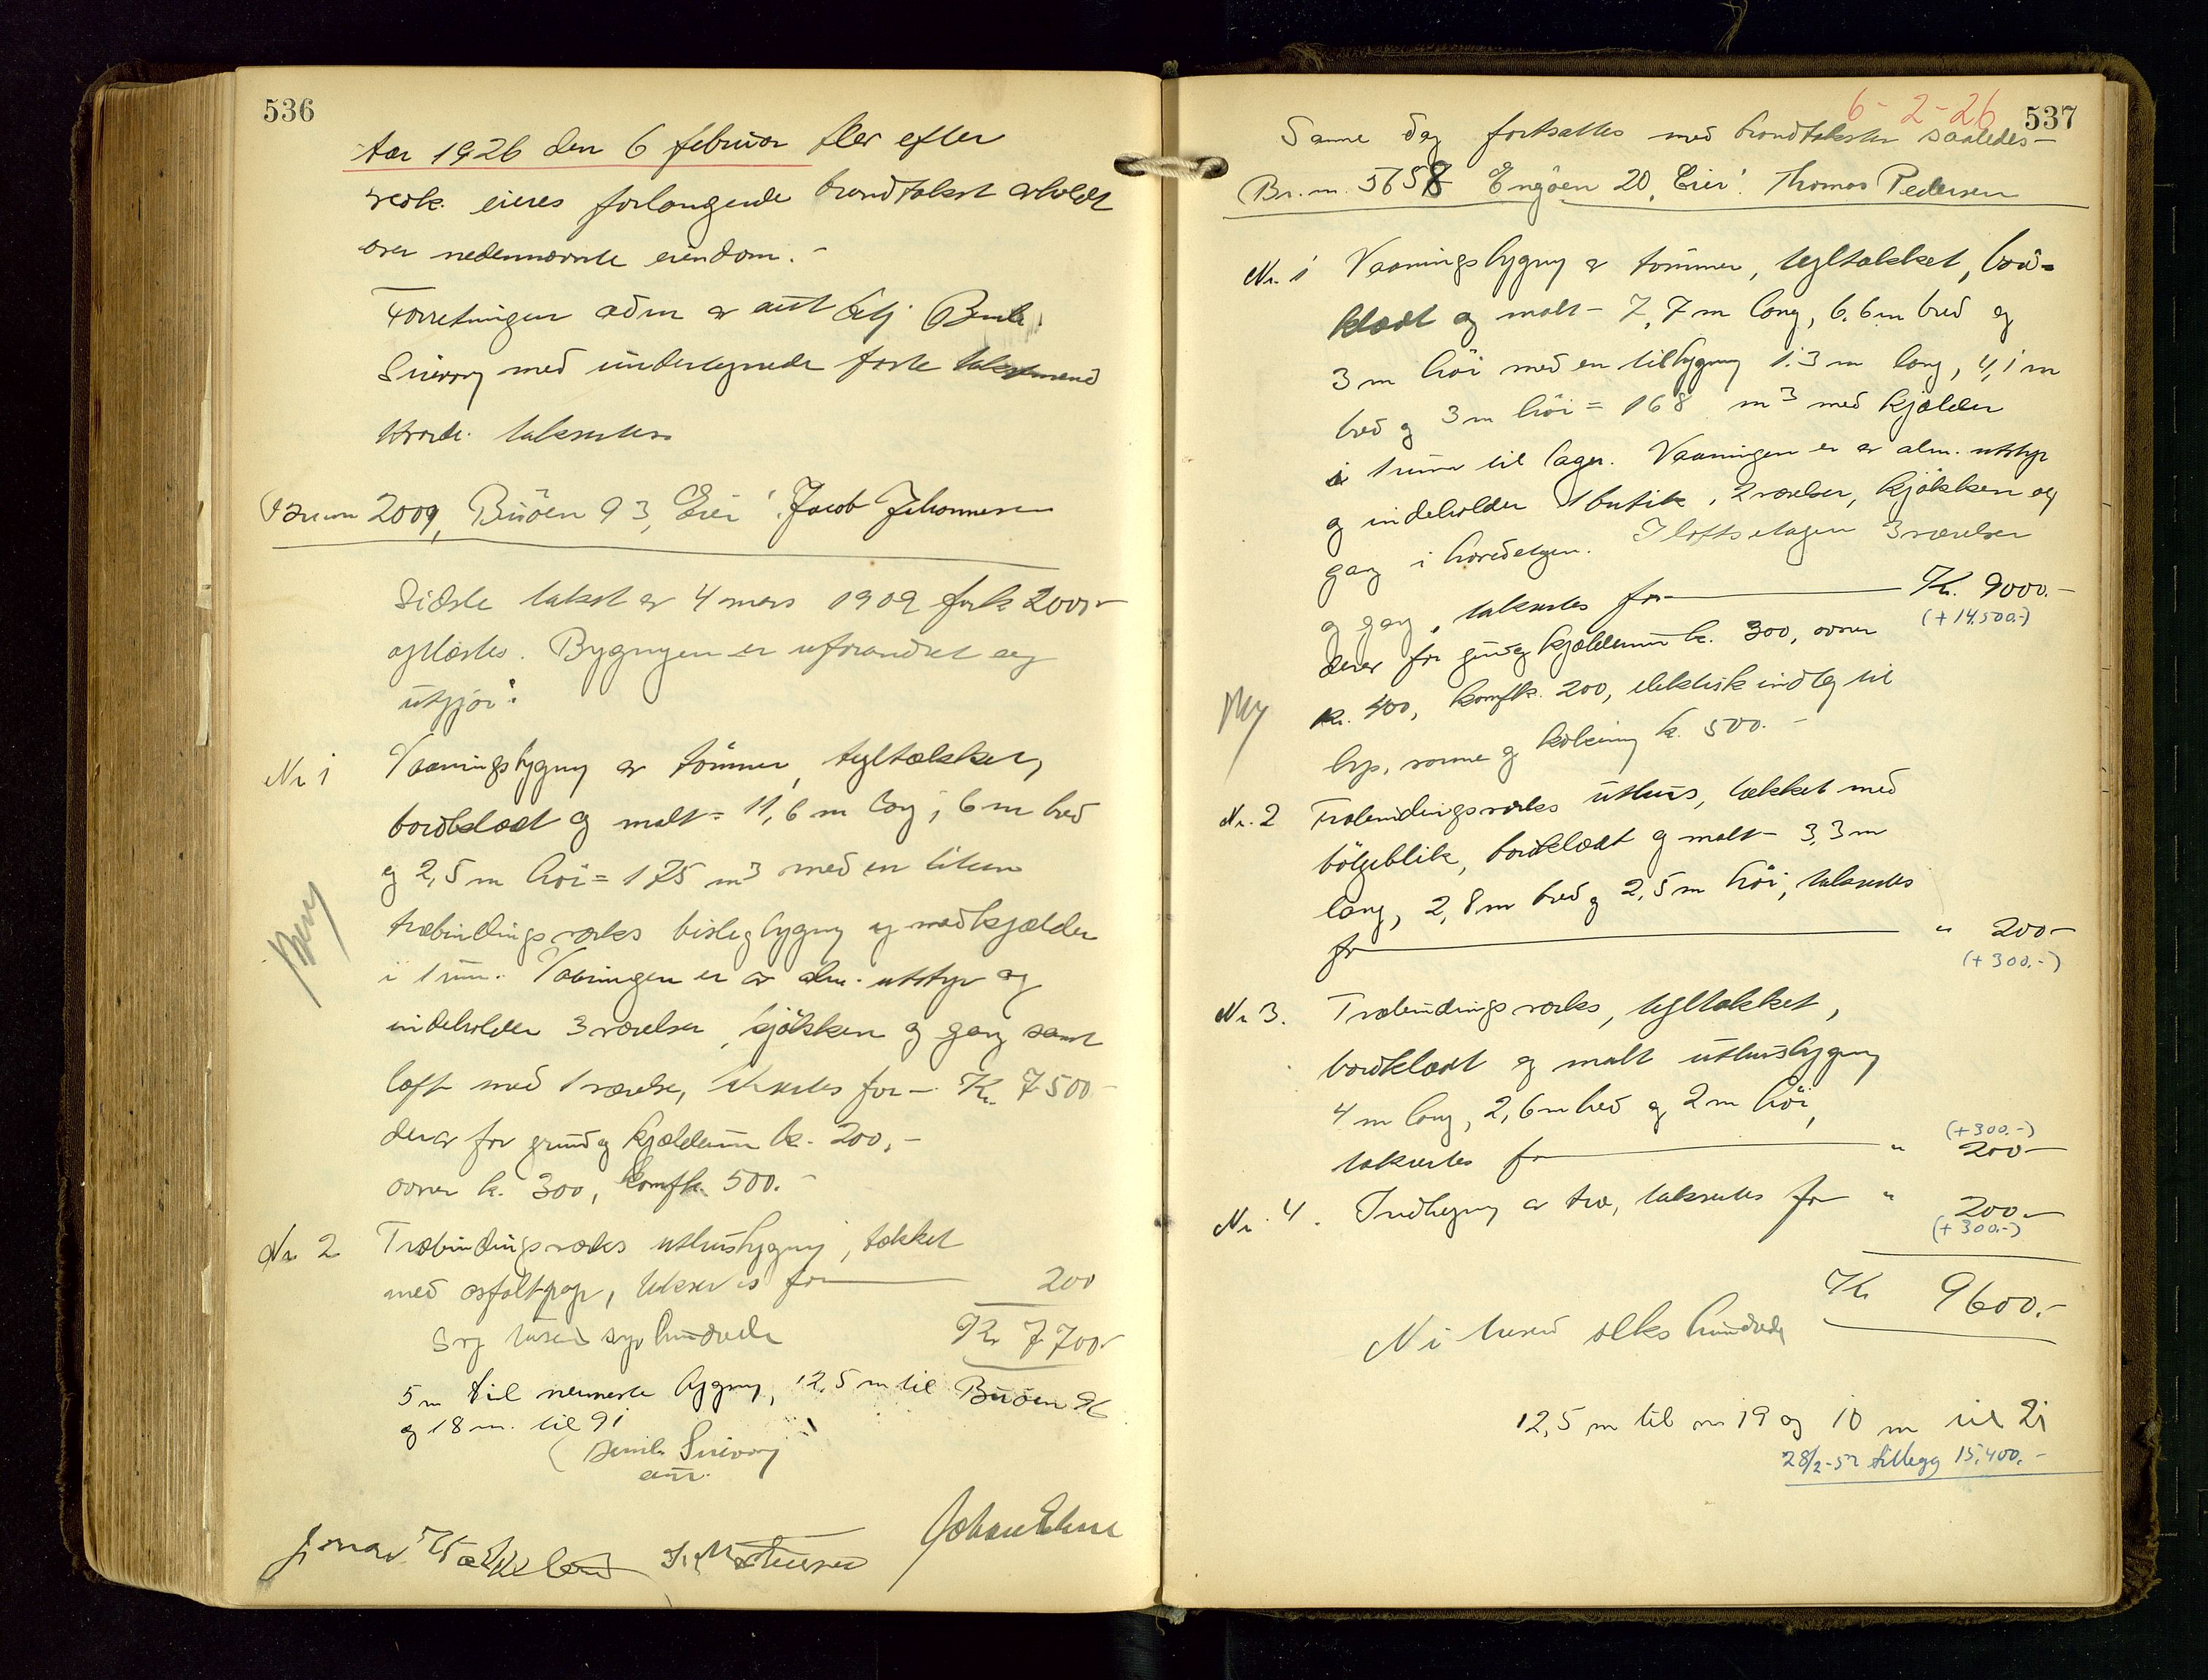 536
Aar 1926 den 6 februar blev efter
vedk. eieres forlangende brandtakst avholdt
over nedennævnte eiendom.-
Forretningen adm av
med undertegnede faste takstmænd
takseres
2009, Buöen 93, Eier: Jacob Johannesen
Sidste takst av 4 mars 1909 for k 2000.-
oplæstes. Bygningen er uforandret og
utgjör:
Nr 1 Vaaningsbygning av tömmer, tegltækket,
bordklædt og malt = 11,6 m lang, 6 m bred
og 2,5 m höi = 175 m3 med en liten
træbindingsverks bislagbygning og med kjælder
i 1 rum. Vaaningen er av alm. utstyr og
indeholder 3 værelser, kjökken og gang samt
loft med 1 værelse, takseres for - Kr. 7500.-
derav for grund og kjælderrum kr. 200,-
ovner kr. 300, komfr. 500.-
Nr 2 Træbindingsverks uthusbygning, tækket
med asfaltpap, takseres for 200
Syv tusen syv hundrede Kr 7700.-
5 m til nærmeste bygning, 12,5 m til Buöen 96
og 18 m. til 91
537
6-2-26
Samme dag fortsattes med brandtakster saaledes-
Br. nr. 5658 Engöen 20, Eier: Thomas Pedersen
Nr. 1 Vaaningsbygning av tömmer, tegltækket, bord-
klædt og malt - 7,7 m lang, 6,6 m bred og
3 m höi med en tilbygning 1.3 m lang, 4,1 m
bred og 3 m höi = 168 m3 med kjælder
i 1 rum til lager. Vaaningen er av alm. utstyr
og indeholder 1 butik, 2 værelser, kjökken og
gang i hovedetagen. I loftsetagen 3 værelser
og gang, takseres for Kr. 9000.-
(+ 14.500.-)
derav for grund og kjælderrum kr. 300, ovner
kr. 400, komfr. 200, elektrisk indlæg til
lys, varme og kokning kr. 500.-
Nr. 2 Træbindingsverks uthus, tækket med
bölgeblik, bordklædt og malt - 3,3 m
lang, 2,8 m bred og 2,5 m höi, takseres
for " 200-
(+ 300.-)
Nr 3. Træbindingsverks, tegltækket,
bordklædt og malt uthusbygning
4 m lang, 2,6 m bred og 2 m höi,
(+ 300.-)
takseres for " 200-
Nr. 4. Indhegning av træ, takseres for " 200.-
(+ 300.-)
Kr 9600.-
Ni tusend seks hundrede
12,5 m til nr 19 og 10 m til 21
28/2-52 tillegg 15.400.-